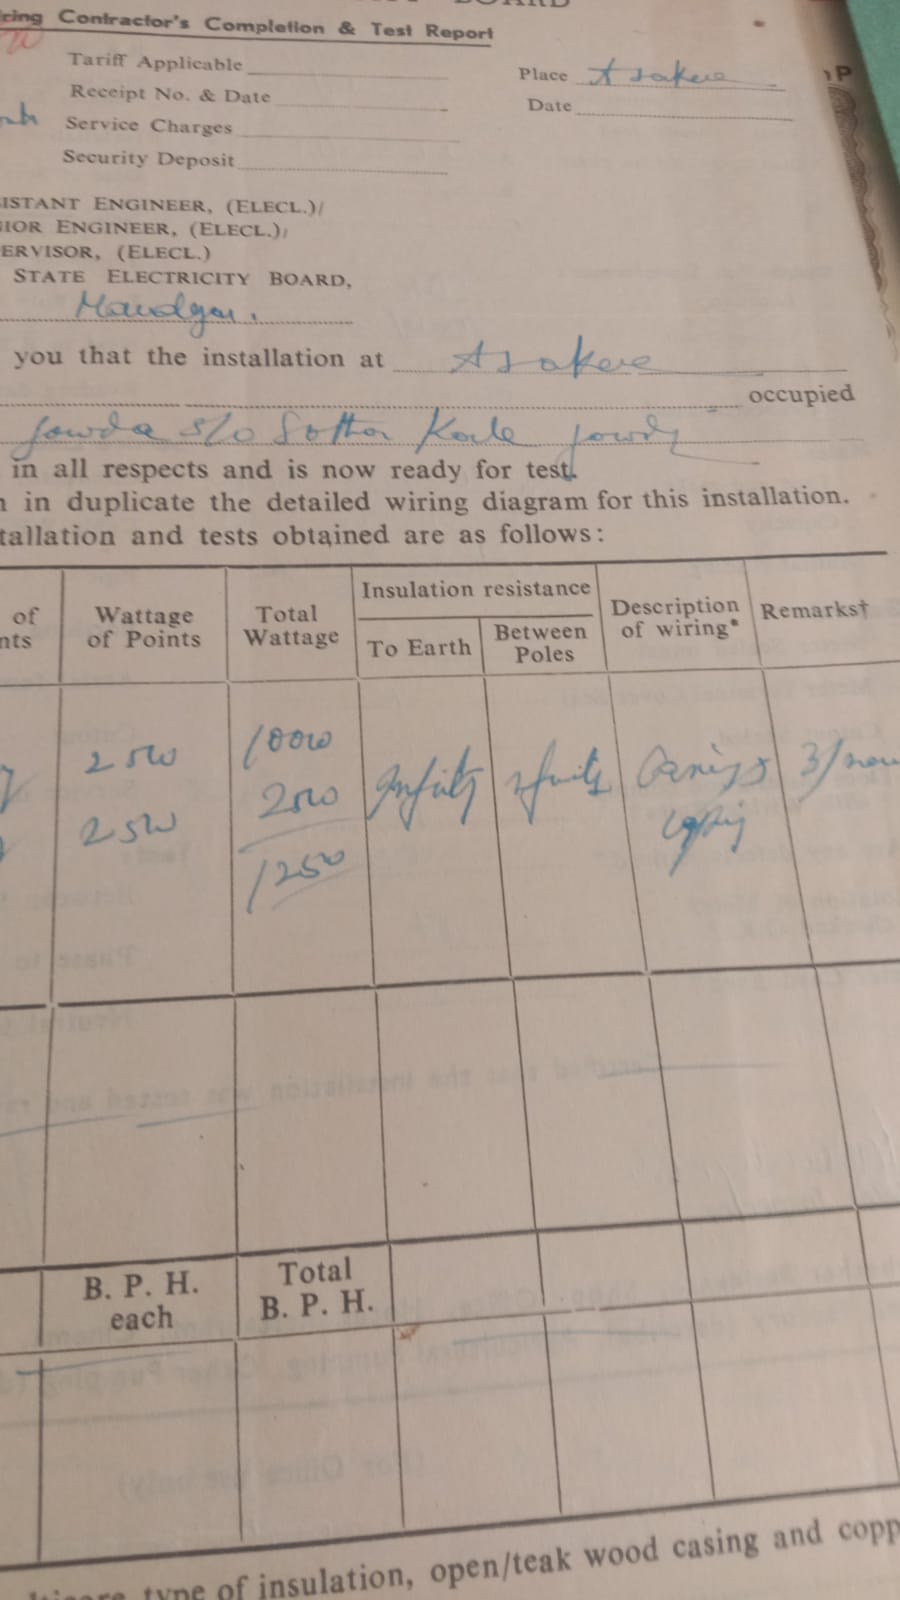 BOARD
ring Contractor's Completion & Test Report
Tariff Applicable
Place Asakere
Receipt No. & Date
Date
Service Charges
Security Deposit
ISTANT ENGINEER, (ELECL.)/
IOR ENGINEER, (ELECL.)/
ERVISOR, (ELECL.)
STATE ELECTRICITY BOARD,
you that the installation at Asakere
occupied
Gowda S/o
in all respects and is now ready for test.
in duplicate the detailed wiring diagram for this installation.
tallation and tests obtained are as follows:
of
nts
Wattage
of Points
Total
Wattage
Insulation resistance
To Earth
Between
Poles
Description
of wiring*
Remarks†
25W
25W
100W
25W
1250
Infinity
Infinity
Casing &
B. P. H.
each
Total
B. P. H.
type of insulation, open/teak wood casing and copp